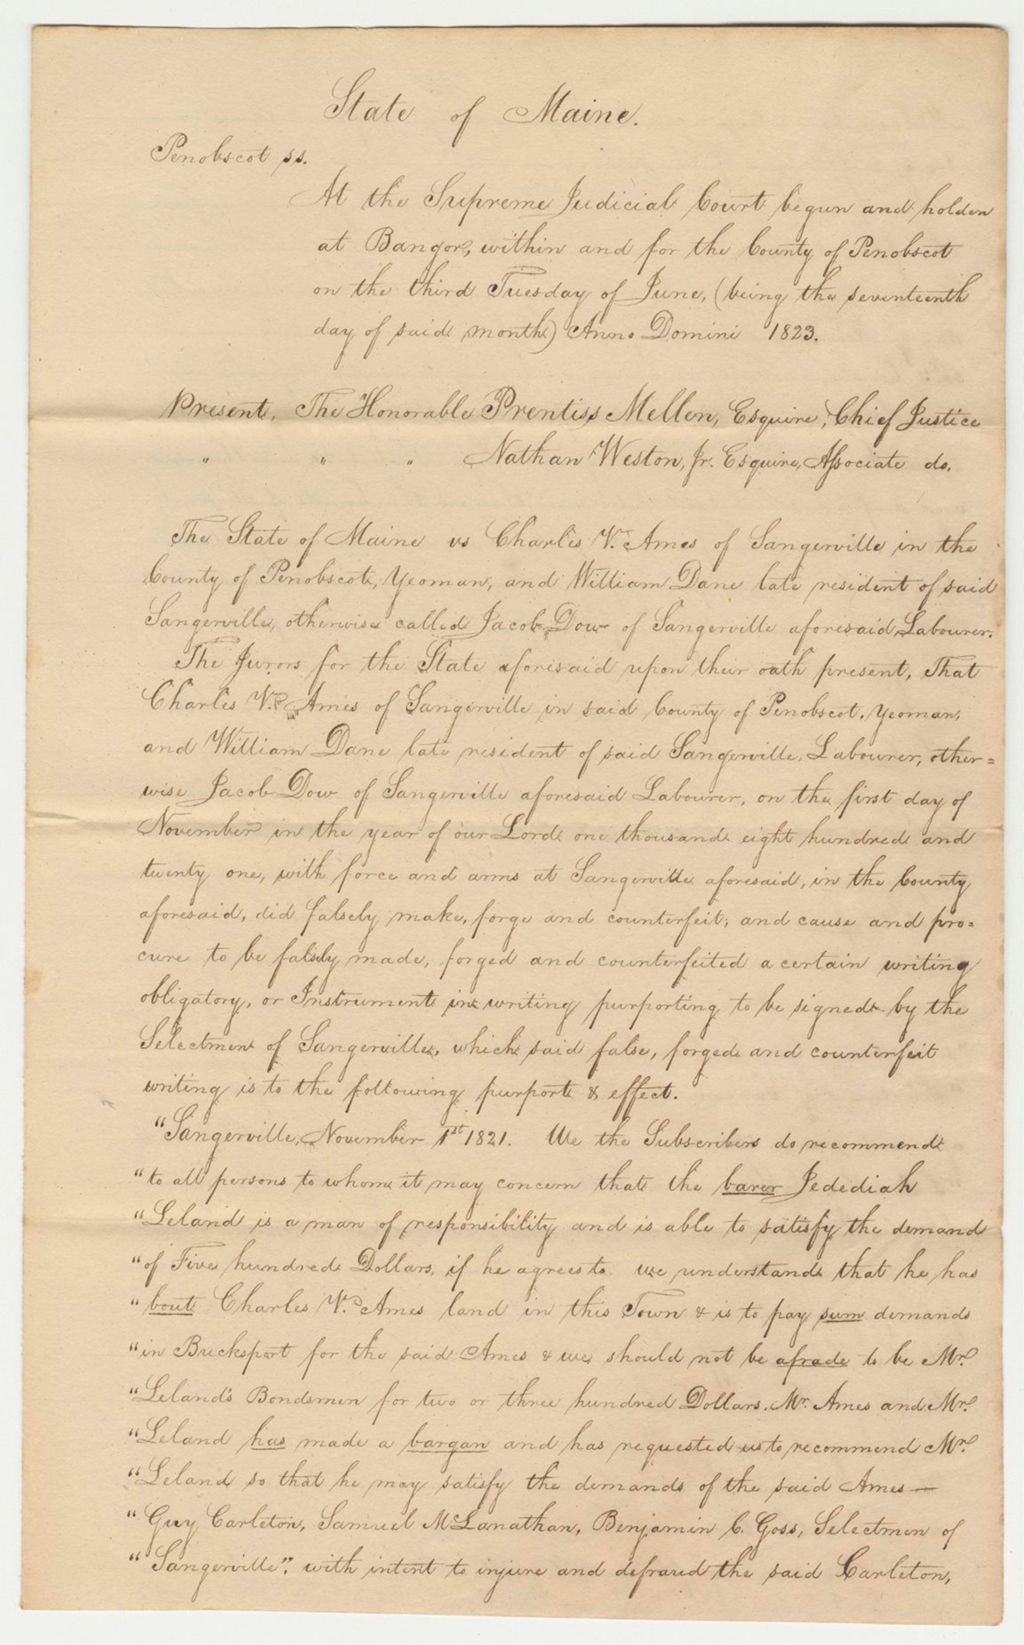 State of Maine.
Penobscot ss.
At the Supreme Judicial Court begun and holden
at Bangor, within and for the County of Penobscot
on the third Tuesday of June, (being the seventeenth
day of said month) Anno Domini 1823.
Present, The Honorable Prentiss Mellen, Esquire, Chief Justice
" " " Nathan Weston, Jr. Esquire, Associate do.
The State of Maine vs Charles V. Ames of Sangerville in the
County of Penobscot, Yeoman, and William Dane late resident of said
Sangerville, otherwise called Jacob Dow of Sangerville aforesaid Labourer.
The Jurors for the State aforesaid upon their oath present, That
Charles V. Ames of Sangerville in said County of Penobscot, Yeoman,
and William Dane late resident of said Sangerville, Labourer, other=
wise Jacob Dow of Sangerville aforesaid Labourer, on the first day of
November in the year of our Lord one thousand eight hundred and
twenty one, with force and arms at Sangerville aforesaid, in the County
aforesaid, did falsely make, forge and counterfeit, and cause and pro=
cure to be falsely made, forged and counterfeited a certain writing
obligatory, or Instrument in writing purporting to be signed by the
Selectmen of Sangerville, which said false, forged and counterfeit
writing is to the following purport & effect.
"Sangerville, November 1st 1821. We the Subscribers do recommend
"to all persons to whom it may concern that the barer Jedediah
"Leland is a man of responsibility and is able to satisfy the demand
"of Five hundred Dollars, if he agrees to. we understand that he has
"bout Charles V. Ames land in this Town & is to pay sum demands
"in Bucksport for the said Ames & we should not be afrade to be Mr.
"Leland's Bondsmen for two or three hundred Dollars. Mr. Ames and Mr.
"Leland has made a bargan and has requested us to recommend Mr.
"Leland so that he may satisfy the demands of the said Ames —
"Guy Carleton, Samuel McLanathan, Benjamin C. Goss, Selectmen of
"Sangerville". with intent to injure and defraud the said Carleton,